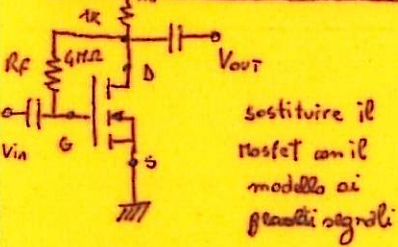 1K
Rf
4MΩ
D
VOUT
Vin
G
S
sostituire il
Mosfet con il
modello ai
piccoli segnali